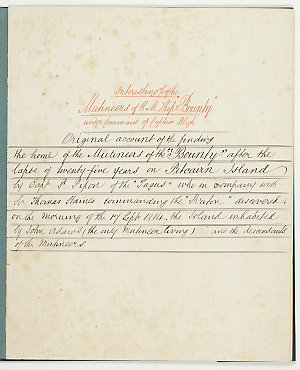 Interesting of the
Mutineers of H. M. Ship "Bounty"
under Command of Captain Bligh
Original account of the finding
the home of the Mutineers of the "Bounty" after the
lapse of twenty-five years on Pitcairn Island
by Capt. P. Pipon of the "Tagus" who in company with
Sir Thomas Staines commanding the "Briton" discovered
on the morning of the 17 Sept 1814, the Island inhabited
by John Adams (the only Mutineer living) and the descendants
of the Mutineers